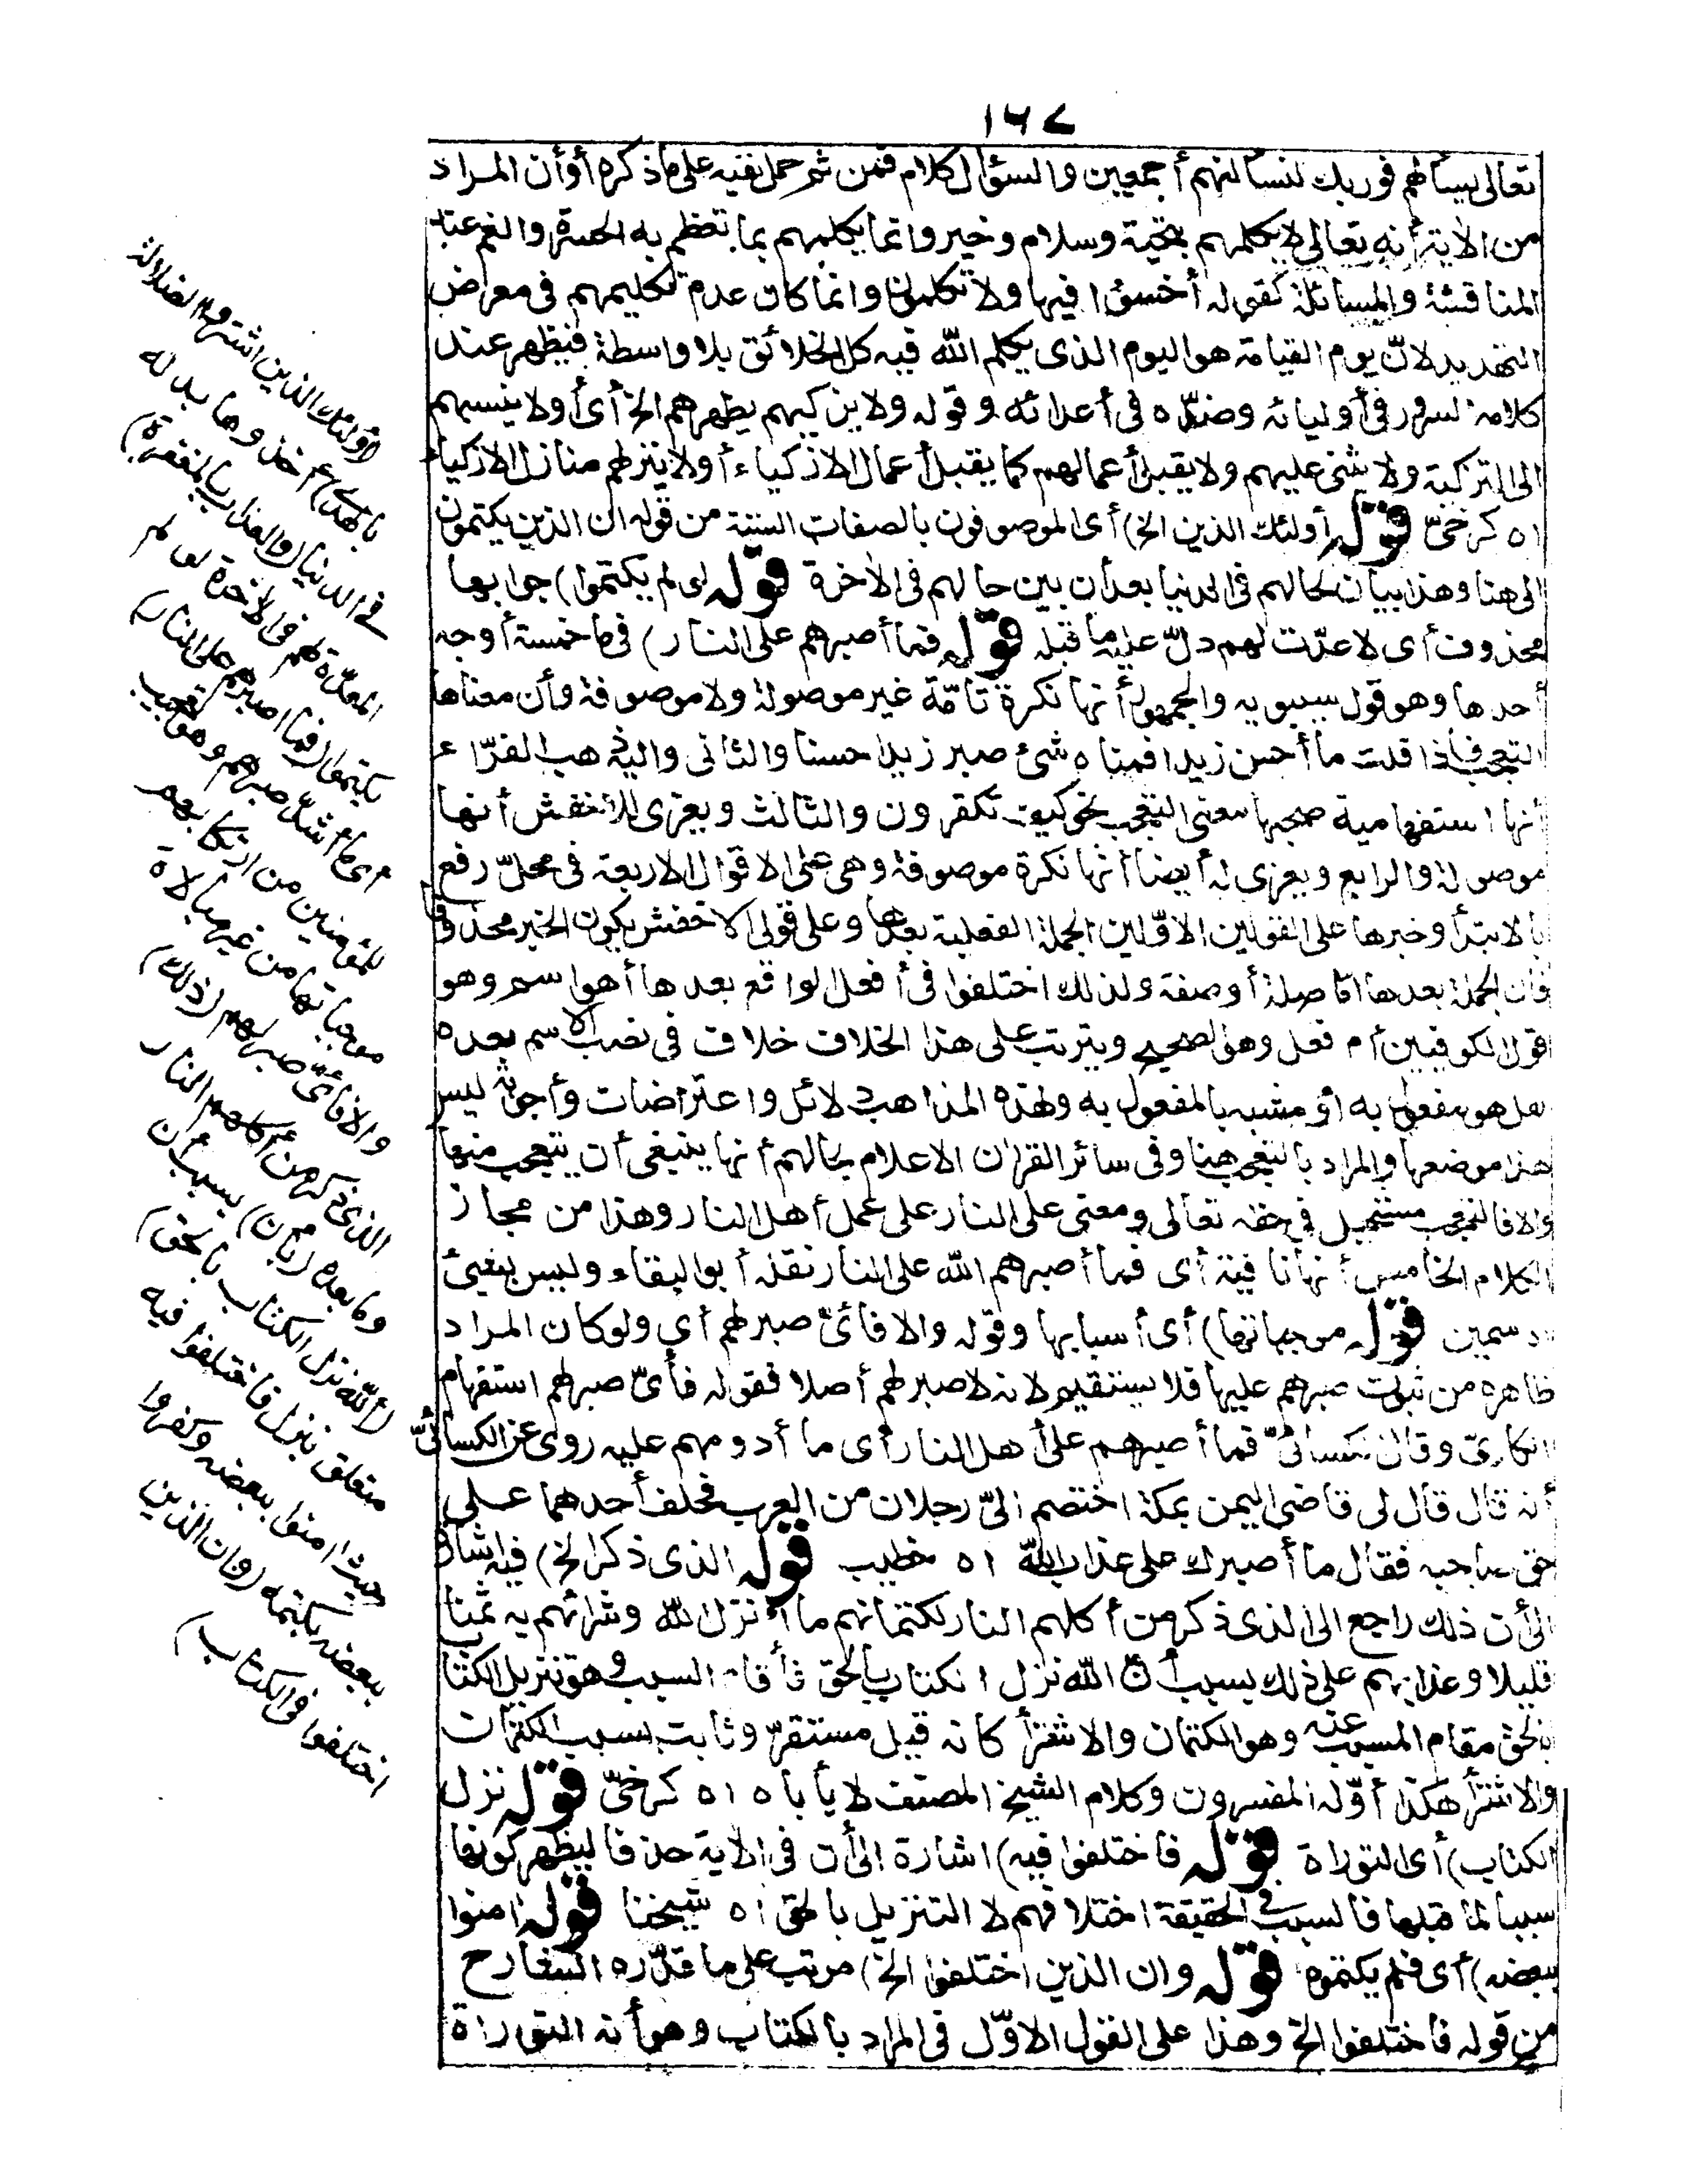 ١٦٧
تعالى يسألهم فوربك لنسألنهم أجمعين والسؤال كلام فمن ثم حمل نفيه على ما ذكره أو أن المراد
من الآية أنه تعالى لا يكلمهم بتحية وسلام وخير وانما يكلمهم بما تعظم به الحسرة والغم عند
المناقشة والمسائلة كقوله أخسؤا فيها ولا تكلمون وانما كان عدم تكليمهم في معراض
التهديد لانّ يوم القيامة هو اليوم الذى يكلم الله فيه كل الخلائق بلا واسطة فيظهر عند
كلامه السرور في أوليائه وضدّه في أعدائه وقوله ولا يزكيهم يطهرهم الخ أى أولا ينسبهم
الى التزكية ولا يثنى عليهم ولا يقبل أعمالهم كما يقبل أعمال الازكياء أولا ينزلهم منازل الازكياء
اه كرخىّ قوله أولئك الذين الخ) أى الموصوفون بالصفات الستة من قوله ان الذين يكتمون
الى هنا وهذا بيان لحالهم في الدنيا بعد أن بين حالهم في الآخرة قوله لو لم يكتموا) جوابها
محذوف أى لاعدّت لهم دلّ عليه ما قبله قوله فما أصبرهم على النار) في ما خمسة أوجه
أحدها وهو قول سيبويه والجمهور أنها نكرة تامّة غير موصولة ولا موصوفة وأن معناها
التعجب فاذا قلت ما أحسن زيدا فمعناه شئ صير زيدا حسنا والثانى واليه ذهب الفرّاء
أنها استفهامية صحبها معنى التعجب نحو كيف تكفرون والثالث ويعزى للاخفش أنها
موصولة والرابع ويعزى له أيضا أنها نكرة موصوفة وهى على الاقوال الاربعة في محلّ رفع
بالابتدأ وخبرها على القولين الاوّلين الجملة الفعلية بعدها وعلى قولى الاخفش يكون الخبر محذوفا
فان الجملة بعدها اما صلة أو صفة ولذلك اختلفوا في أفعل الواقع بعدها أهو اسم وهو
قول الكوفيين أم فعل وهو الصحيح ويترتب على هذا الخلاف خلاف في نصب الاسم بعده
هل هو مفعول به أو مشبه بالمفعول به ولهذه المذاهب دلائل واعتراضات وأجوبة ليس
هذا موضعها والمراد بالتعجب هنا وفى سائر القرآن الاعلام بحالهم أنها ينبغى أن يتعجب منها
والا فالتعجب مستحيل في حقه تعالى ومعنى على النار على عمل أهل النار وهذا من مجاز
الكلام الخامس أنها نافية أى فما أصبرهم الله على النار نقله أبو البقاء وليس بشئ
اه سمين قوله موجباتها) أى أسبابها وقوله والا فأىّ صبر لهم أى ولو كان المراد
ظاهره من ثبوت صبرهم عليها فلا يستقيم لانه لا صبر لهم أصلا فقوله فأىّ صبر لهم استفهام
انكارىّ وقال الكسائىّ فما أصبرهم على أهل النار أى ما أدومهم عليه روى عن الكسائىّ
أنه قال قال لى قاضى اليمن بمكة اختصم الىّ رجلان من العرب فحلف أحدهما على
حق صاحبه فقال ما أصبرك على عذاب الله اه خطيب قوله الذى ذكر الخ) فيه اشارة
الى أن ذلك راجع الى الذى ذكر من أكلهم النار لكتمانهم ما أنزل الله وشرائهم به ثمنا
قليلا وعذابهم على ذلك بسبب أنّ الله نزل الكتاب بالحق فأقام السبب وهو تنزيل الكتاب
بالحق مقام المسبب عنه وهو الكتمان والاشترأ كانه قيل مستقرّ وثابت بسبب الكتمان
والاشترأ هكذا أوّله المفسرون وكلام الشيخ المصنف لا يأباه اه كرخىّ قوله نزل
الكتاب) أى التوراة قوله فاختلفوا فيه) اشارة الى أن في الآية حذفا ليظهر كونها
سببا لما قبلها فالسبب في الحقيقة اختلافهم لا التنزيل بالحق اه شيخنا قوله امنوا
ببعضه) أى فلم يكتموه قوله وان الذين اختلفوا الخ) مرتب على ما قدّره الشارح
من قوله فاختلفوا الخ وهذا على القول الاوّل في المراد بالكتاب وهو أنه التوراة
(أولئك الذين اشتروا الضلالة
بالهدى) أخذوها بدله
في الدنيا (والعذاب بالمغفرة)
المعدّة لهم في الآخرة لو لم
يكتموا (فما أصبرهم على النار)
أى ما أشدّ صبرهم وهو تعجيب
للمؤمنين من ارتكابهم
موجباتها من غير مبالاة
والا فأىّ صبر لهم (ذلك)
الذى ذكر من أكلهم النار
وما بعده (بأن) بسبب أن
(الله نزل الكتاب بالحق)
متعلق بنزل فاختلفوا فيه
حيث امنوا ببعضه وكفروا
ببعضه بكتمه (وان الذين
اختلفوا في الكتاب)